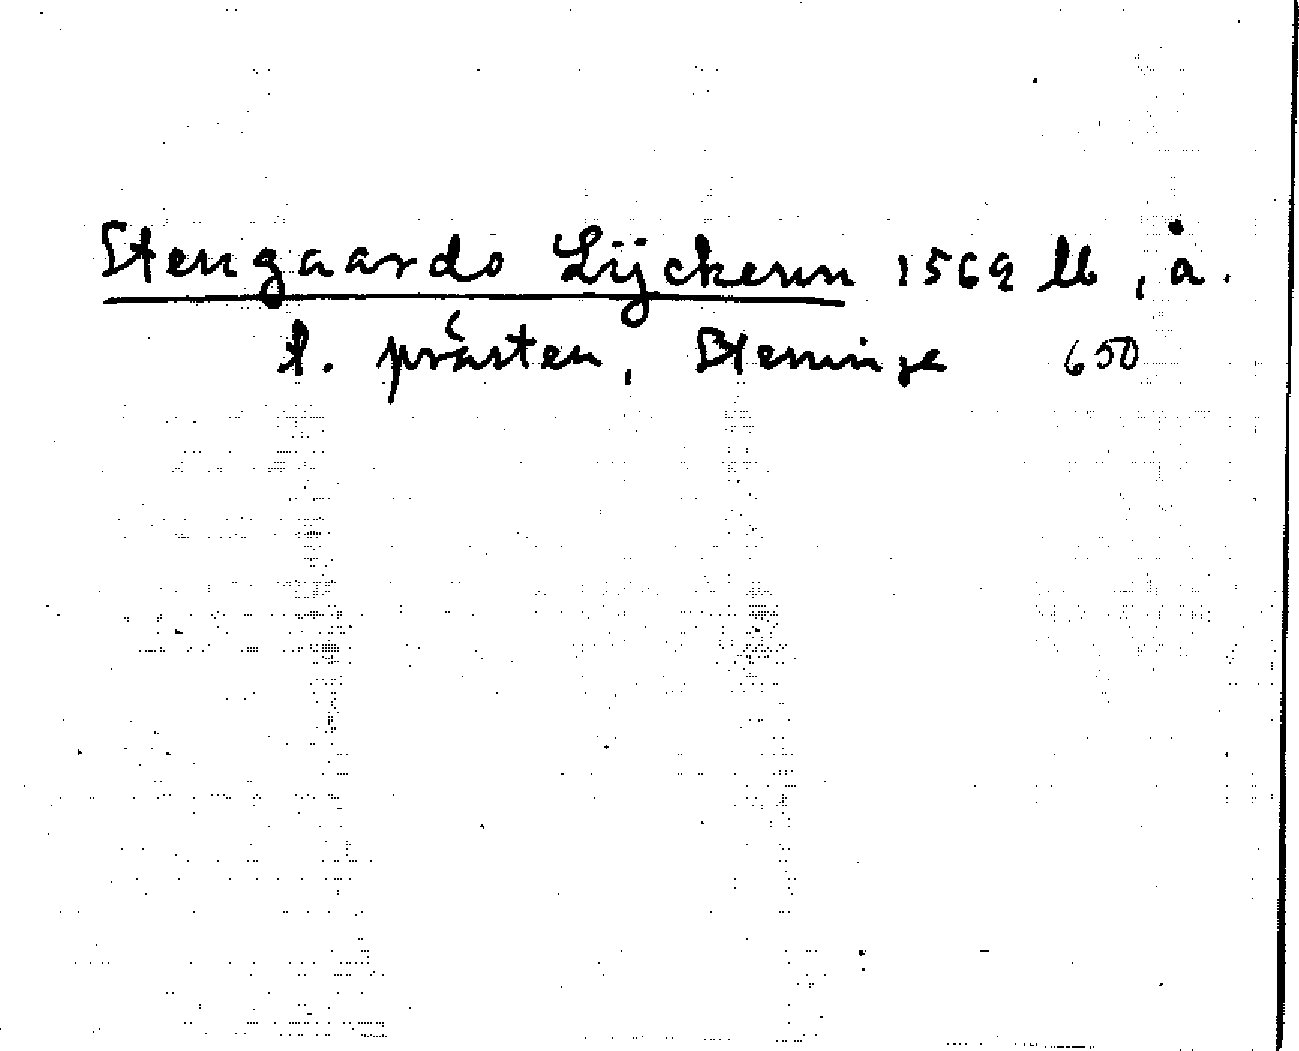 Stengaards Lÿckenn 1569 lb, å.
t. prästen, Steninge 650